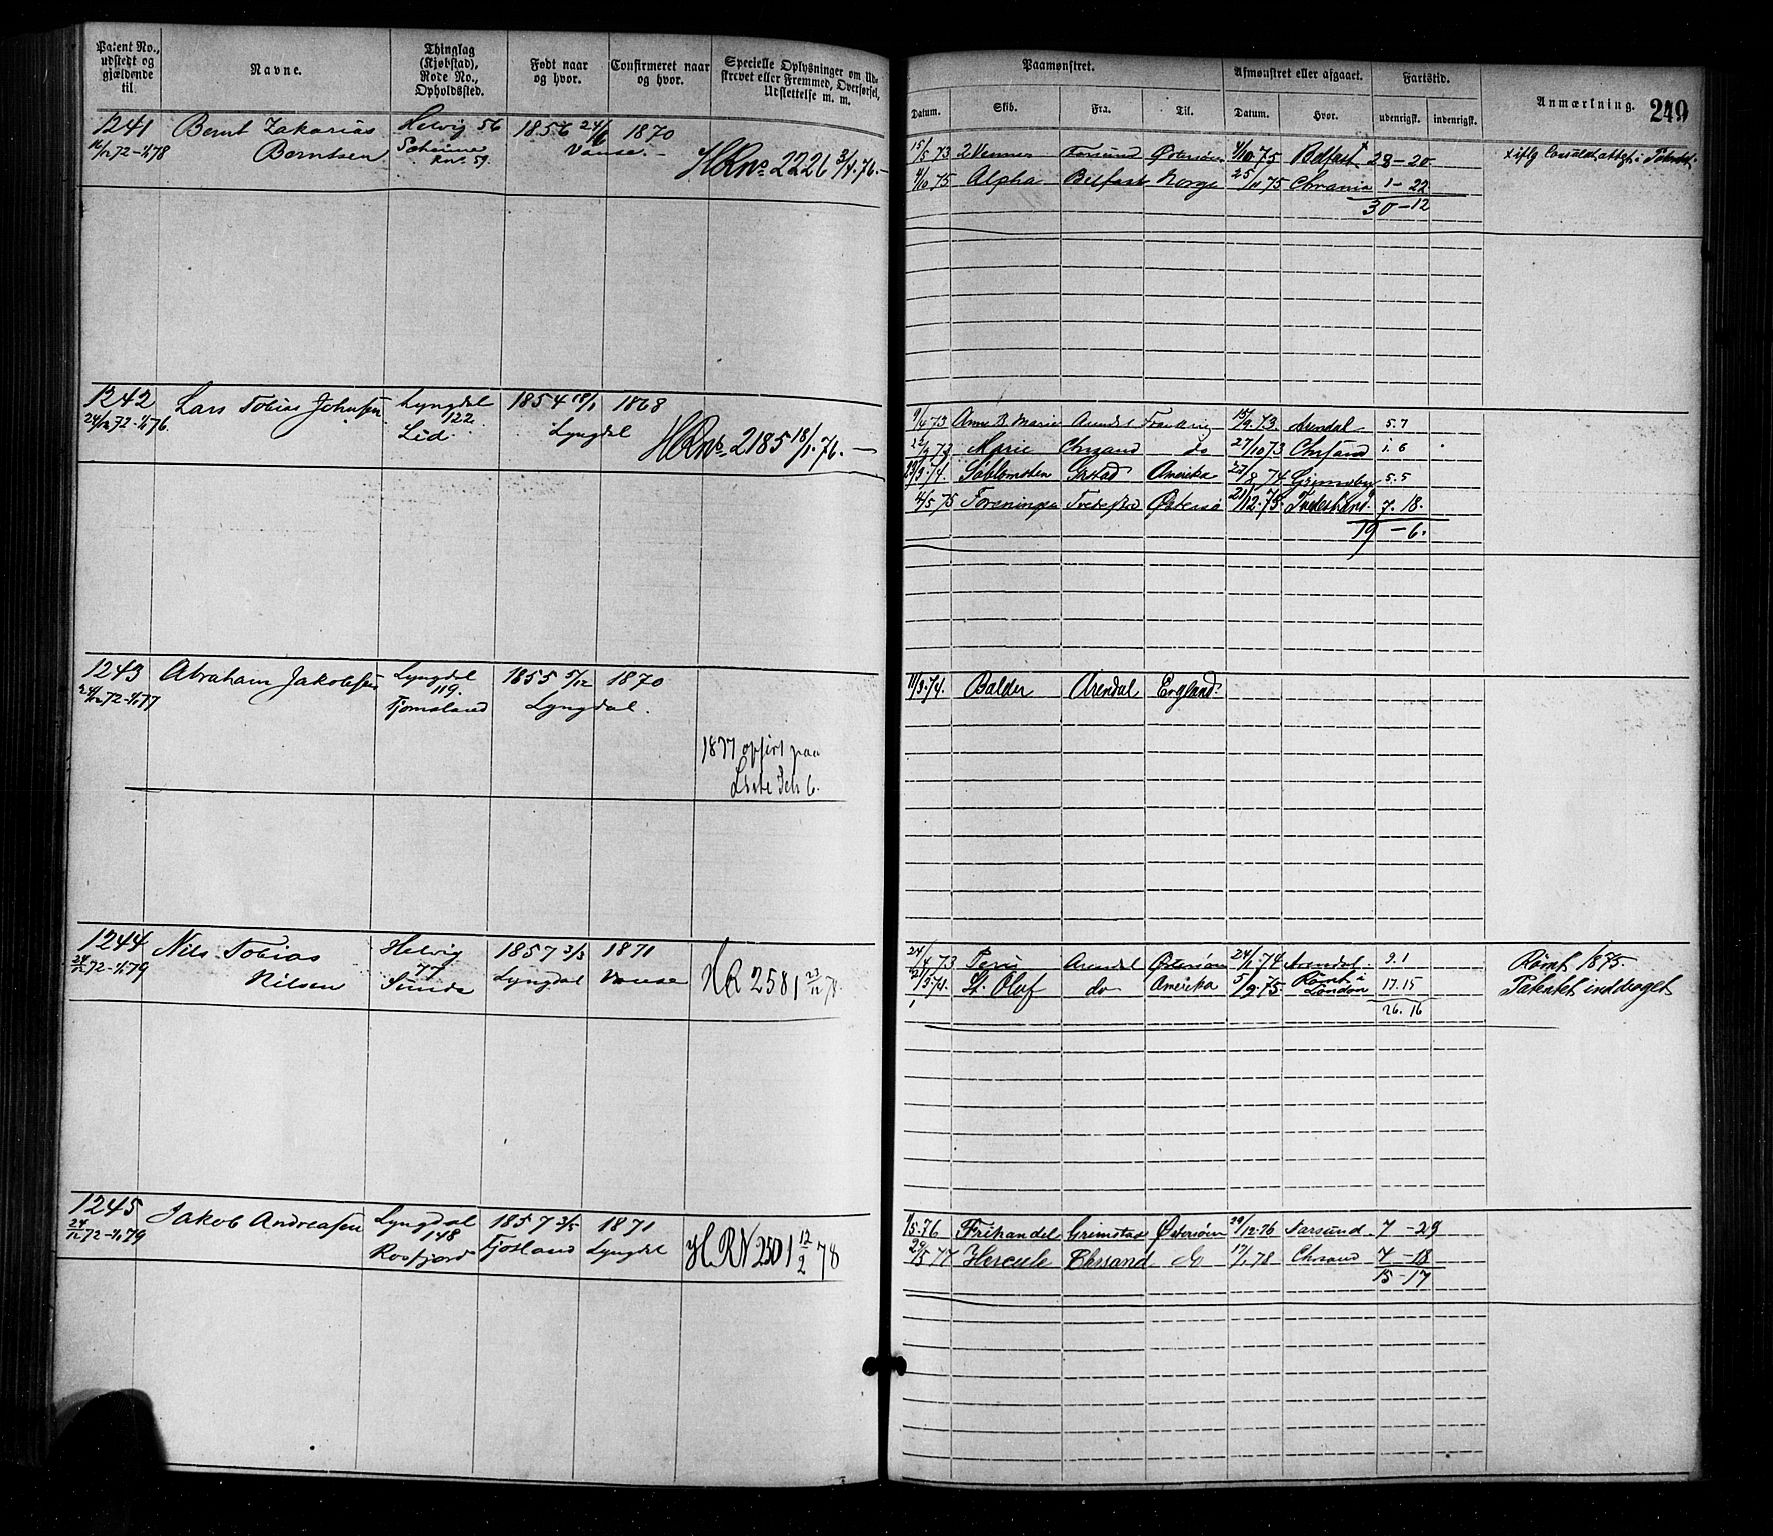 Patent No., udstedt og gjældende til.
Navne.
Thinglag (Kjøbstad), Rode No., Opholdssted.
Født naar og hvor.
Confirmeret naar og hvor.
Specielle Oplysninger om Udskrevet eller Fremmed, Overførsel, Udslettelse m. m.
Paamønstret.
Afmønstret eller afgaaet.
Fartstid.
Anmærkning.
249
Datum.
Skib.
Fra.
Til.
Datum.
Hvor.
udenrigsk.
indenrigsk.
1241 Bernt Zakarias Helvig 56 1856 1870
Berntsen Vanse.
HRno. 2226 3/4.76.
15/5 73 2 Venner Farsund Østersøen 4/10 75 Belfast 28-20
4/10 75 Alpha Belfast Norge 25/11 75 Chrania 1-22
30-12
1242 Lars Tobias Johnsen Lyngdal 122 1854 18/1 1868
24/12 72-1/1 76 Lid Lyngdal
HRno. 2185 18/1.76.
9/4 73 Anne B Marie Arendal 15/9.73. Arendal 5.7
Chrsand do 27/10 73 Chrsand 1.6
Amerika 22/8 74 Grimsby 5.5
4/5 75 Foreningen Østersø 21/12.75. 7.18.
19-6.
1243 Abraham Jakobsen Lyngdal 119. 1855 5/12 1870
24/12 72-1/1 77 Fjomsland Lyngdal.
1877 opført paa
11/3.74. Balder Arendal England
1244 Nils Tobias Helvig 77 1857 3/3 1871
24/12 72-1/1 79 Nilsen Sunde Lyngdal Vanse
HR 2581 78.
24/4 73 Peru Arendal Østersøen 24/1 74 Arendal. 9.1
21/3.74. St. Olaf do Amerika 5/9.75. Rømt i London 17.15
26.16
Rømt 1875.
Patentet inddraget
1245 Jakob Andreasen Lyngdal 148 1857 3/5 1871
24/12 72-1/1 79 Rosfjord Fjosland Lyngdal
HRN 2501 12/2 78
Frihandel Grimstad Østersøen 29/12.76 Farsund. 7-29
29/5 77 Hercule Chrsand do 17/1 78 Chrsand 7-18
15-17